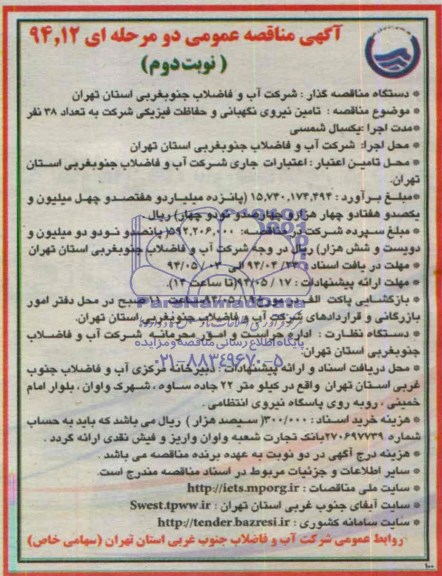 آگهی مناقصه عمومی دو مرحله ای ۹۴,۱۲
( نوبت دوم )
* دستگاه مناقصه گذار : شرکت آب و فاضلاب جنوبغربی استان تهران
* موضوع مناقصه : تامین نیروی نگهبانی و حفاظت فیزیکی شرکت به تعداد ۳۸ نفر
*مدت اجرا :یکسال شمسی
* محل اجرا: شرکت آب و فاضلاب جنوبغربی استان تهران
* محل تامین اعتبار : اعتبارات جاری شرکت آب و فاضلاب جنوبغربی استان
تهران.
*مبلغ برآورد : ۱۵,۷۴۰,۱۷۴,۴۹۴ (پانزده میلیاردو هفتصدو چهل میلیون و
یکصدو هفتادو چهار هزارو چهارصدو نودو چهار) ریال
* مبلغ سپرده شرکت در مناقصه: ۵۹۲,۲۰۶,۰۰۰( پانصدو نودو دو میلیون و
دویست و شش هزار) ریال در وجه شرکت آب و فاضلاب جنوبغربی استان تهران
* مهلت دریافت اسناد : الی ۹۴/۰۵/۰۳
* مهلت ارائه پیشنهادات : ۹۴/۰۵/۱۷ (تا ساعت ۱۴).
* بازگشایی پاکت الف ساعت صبح در محل دفتر امور
بازرگانی و قراردادهای شرکت آب و فاضلاب جنوبغربی استان تهران.
* دستگاه نظارت : اداره حراست و امور محرمانه شرکت آب و فاضلاب
جنوبغربی استان تهران
* محل دریافت اسناد و ارائه پیشنهادات : دبیرخانه مرکزی آب و فاضلاب جنوب
غربی استان تهران واقع در کیلو متر ۲۲ جاده ساوه ، شهرک واوان ، بلوار امام
خمینی ، روبه روی پاسگاه نیروی انتظامی .
* هزینه خرید اسناد : ۳۰۰/۰۰۰( سیصد هزار ) ریال می باشد که باید به حساب
شماره ۲۷۰۶۹۷۷۳۹بانک تجارت شعبه واوان واریز و فیش نقدی ارائه گردد .
* هزینه درج آگهی در دو نوبت به عهده برنده مناقصه می باشد .
* سایر اطلاعات و جزئیات مربوط در اسناد مناقصه مندرج است.
* سایت ملی مناقصات : http://iets.mporg.ir
* سایت آبفای جنوب غربی استان تهران : Swest.tpww.ir
* سایت سامانه کشوری : http://tender.bazresi.ir
روابط عمومی شرکت آب و فاضلاب جنوب غربی استان تهران (سهامی خاص)
ParsNamadData
پایگاه اطلاع رسانی مناقصه و مزایده
۰۲۱-۸۸۳۴۹۶۷۰-۵
۱۰۰